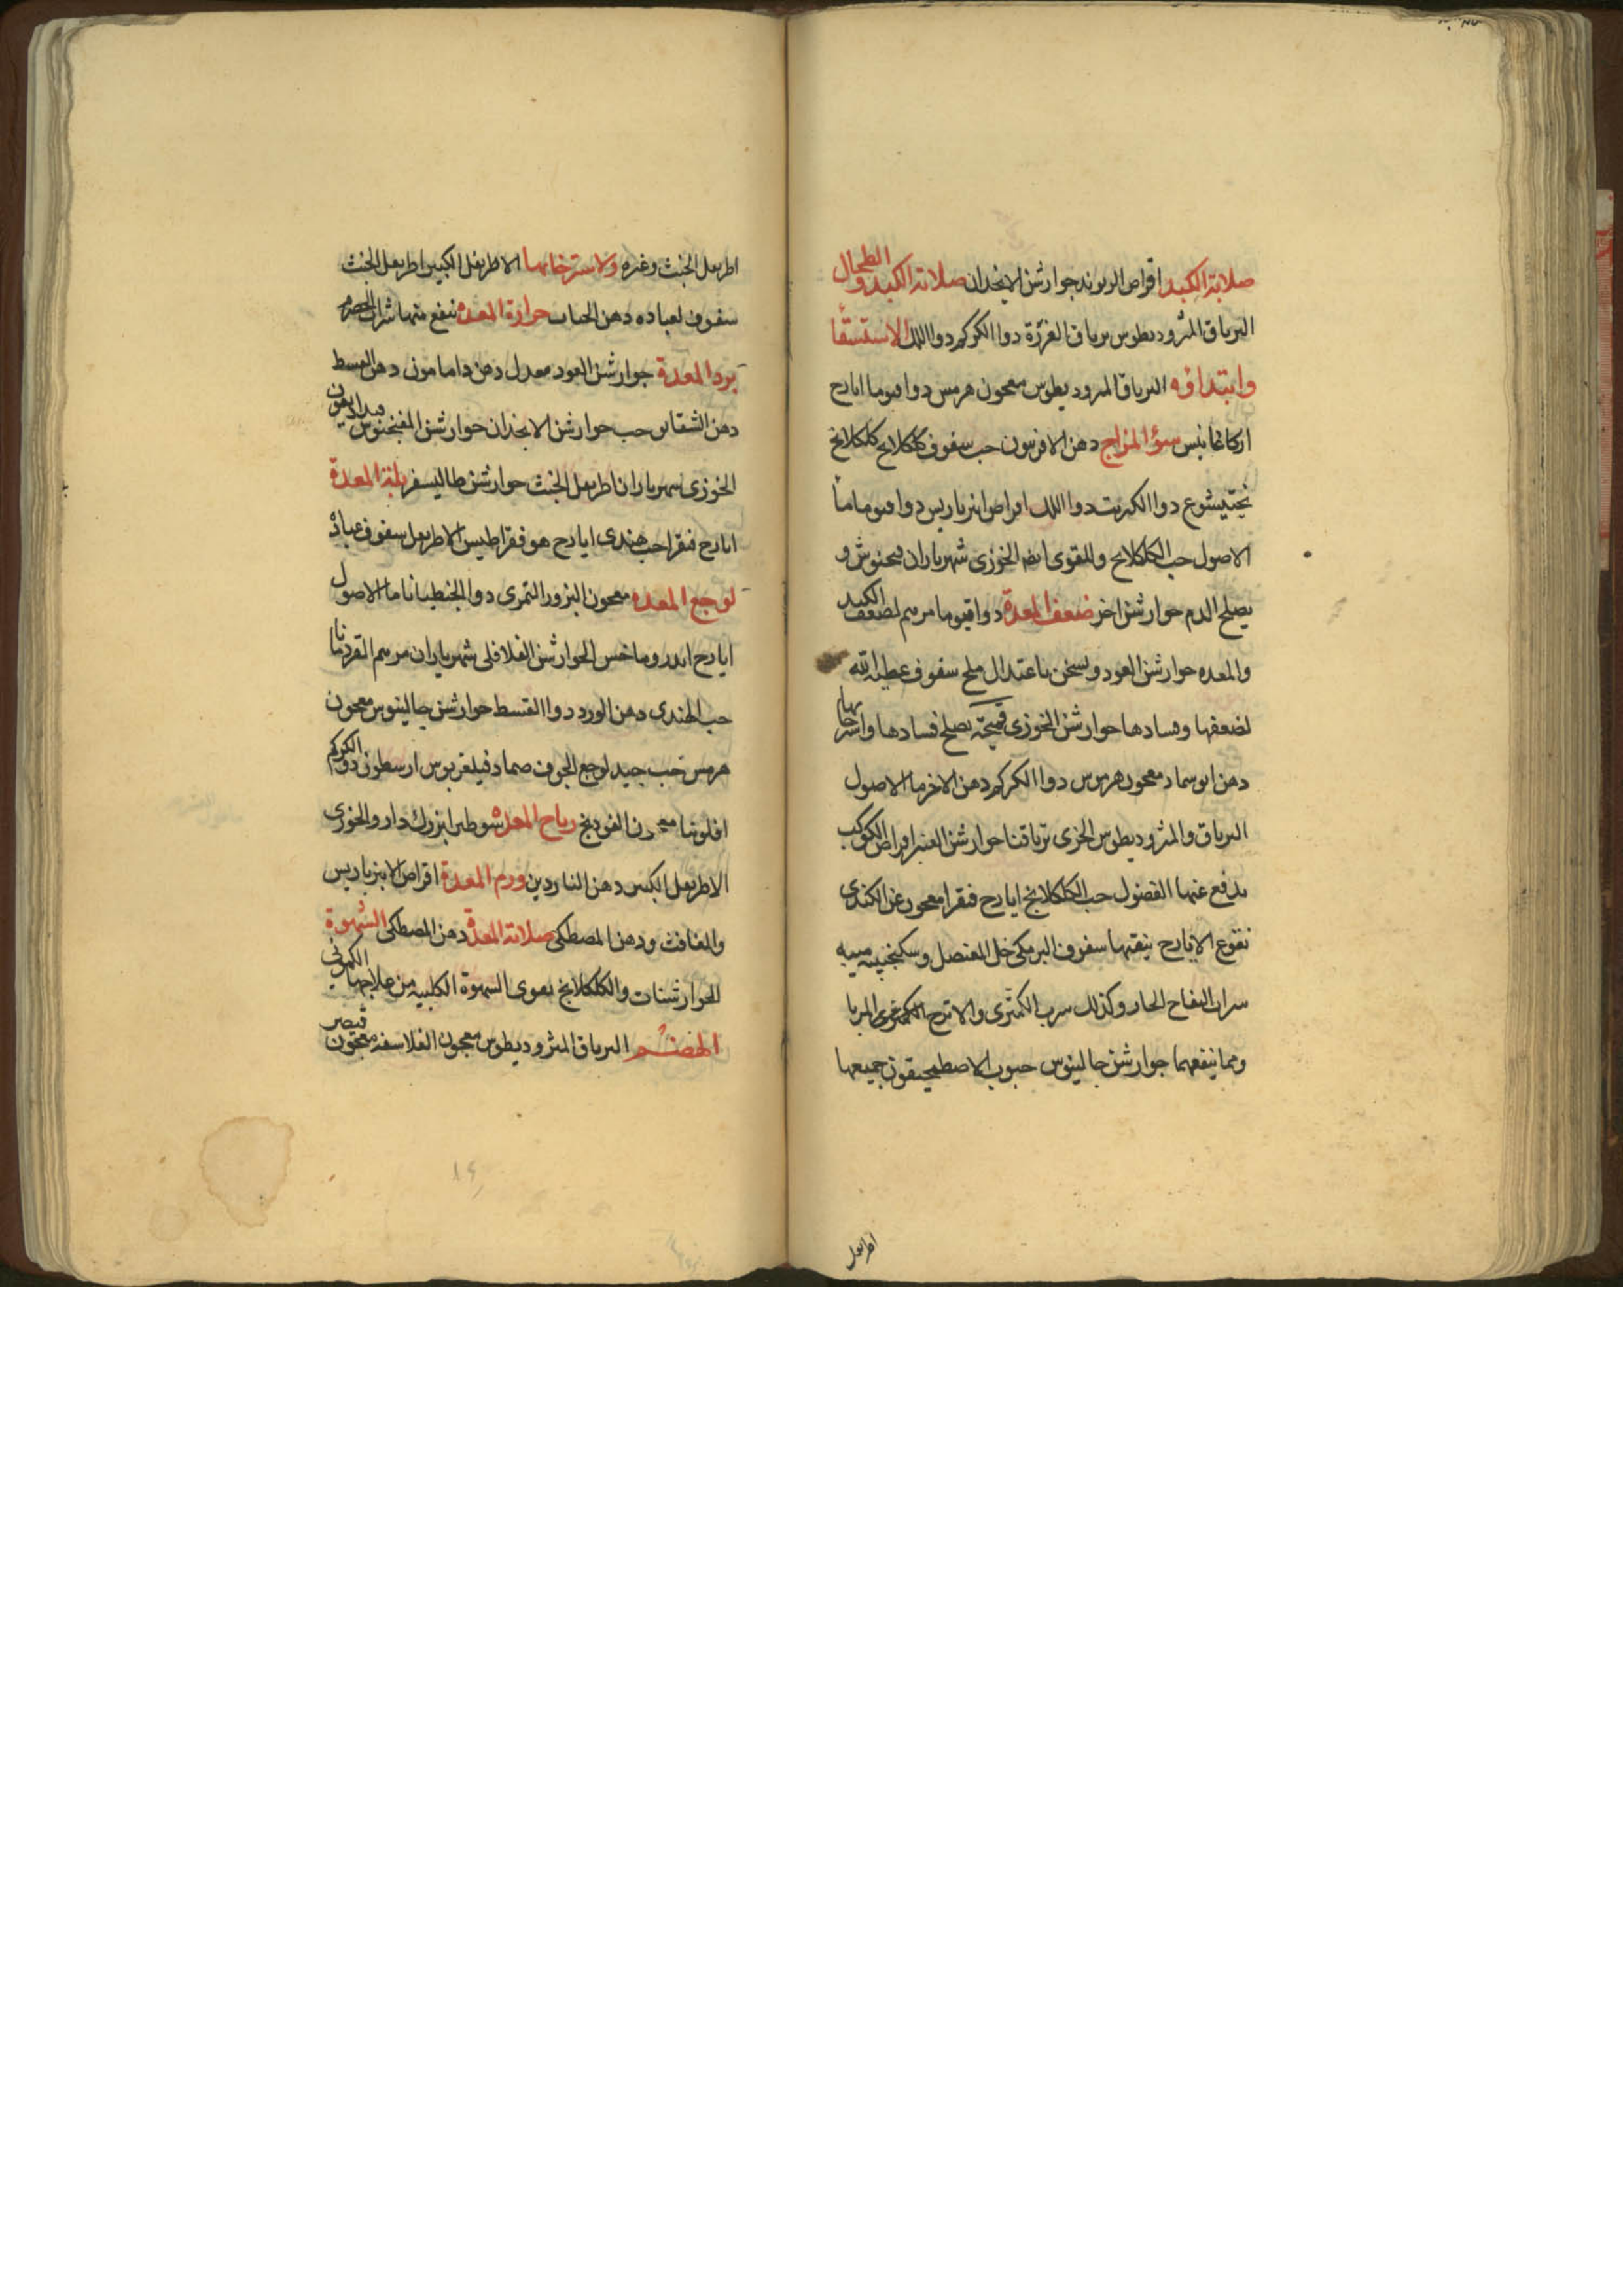 صلابة الكبد اقراص الريوند جوارشن الانجدان صلابة الكبد والطحال
الترياق المثروديطوس ترياق الغرزة دوا الكركم دوا اللك الاستسقا
وابتدا فه الترياق المثروديطوس معجون هرمس دوا قيوما ايارح
اركاغانيس سؤ المزاج دهن الافرنيون حب سفوف كلكلانج كلكلانج
بختيشوع دوا الكبريت دوا اللك اقراص انبرباريس دوا قيوما ما
الاصول حب الكلكلانج وللقوى ايضا الخوزى شهرياران فنجنوش و
يصلح الدم جوارشن اخر ضعف المعدة دوا قيوما مرهم لضعف الكبد
والمعده جوارشن العود ويسخن باعتدال ملح سفوف عطية الله
لضعفها وفسادها جوارشن الخوزى يصلح فسادها واسترخايها
دهن معجون هرمس دوا الكركم دهن الاخر ما الاصول
الترياق والمثروديطوس الخزى ترياقنا جوارشن العنبر اقراص الكوكب
يدفع عنها الفضول حب الكلكلانج ايارح فيقرا معجون عن الكندى
نقوع الايارح ينقيها سفوف البرمكى خل العنصل وسكنجبينه ميبه
شراب التفاح الحار وكذلك شرب الكمثرى والاترج المربا
ومما ينفعهما جوارشن جالينوس حبوب الاصطمحيقون جميعها
اطريفل
اطريفل الخبث وغيره ولاسترخائها الاطريفل الكبير اطريفل الخبث
سفوف لعباده دهن الحناب حرارة المعده ينفع منها شراب الحصرم
برد المعدة جوارشن العود معدل دهن دامامون دهن القسط
دهن الشقايق حب جوارشن الانجدان جوارشن الفنجنوش
الخوزى شهرياران اطريفل الخبث جوارشن طاليسفر بلة المعدة
ايارح فيقرا حب هندى ايارح هوفقراطيس الاطريفل سفوف عباده
لوجع المعده معجون البزور التمرى دوا الجنطيانا ما الاصول
ايارح اندروماخس الجوارشن الفلافلى شهرياران مرهم القردمانا
حب الهندى دهن الورد دوا القسط جوارشن جالينوس معجون
هرمس حب جيد لوجع الجوف ضماد فيلغريوس ارسطون دوا الكركم
افلونيا معجون الفودنج رياح المعده شوطيرا بزرك دارو الخوزى
الاطريفل الكبير دهن الناردين ورم المعدة اقراص الانبرباريس
والغافث ودهن المصطكى صلابة المعدة دهن المصطكى الشهوة
للجوارشنات والكلكلانج يقوى الشهوة الكلبيه من علاجها الكمونى
الهضم الترياق المثروديطوس معجون الفلاسفه معجون قيصر